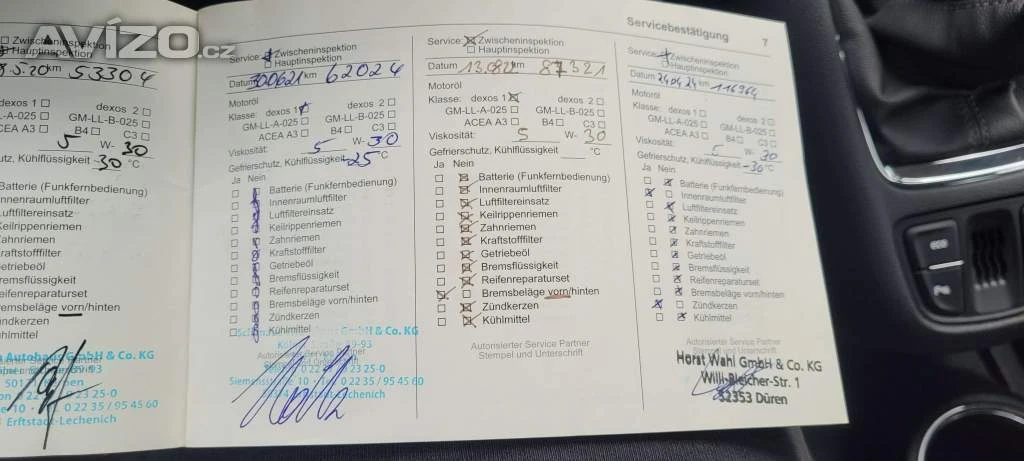 Avízo.cz
Servicebestätigung 7
Zwischeninspektion
Hauptinspektion
.5.20 km 53304
dexos 1 dexos 2
LL-A-025 GM-LL-B-025
ACEA A3 B4 C3
5 W- 30
utz, Kühlflüssigkeit -30 °C
Batterie (Funkfernbedienung)
nnenraumluftfilter
uftfiltereinsatz
Keilrippenriemen
Zahnriemen
Kraftstofffilter
etriebeöl
remsflüssigkeit
eifenreparaturset
emsbeläge vorn/hinten
ündkerzen
ühlmittel
Autohaus GmbH & Co. KG
Erftstadt-Lechenich
Service: Zwischeninspektion
Hauptinspektion
Datum 300621 km 62024
Motoröl
Klasse: dexos 1 dexos 2
GM-LL-A-025 GM-LL-B-025
ACEA A3 B4 C3
Viskosität: 5 W- 30
Gefrierschutz, Kühlflüssigkeit -25 °C
Ja Nein
Batterie (Funkfernbedienung)
Innenraumluftfilter
Luftfiltereinsatz
Keilrippenriemen
Zahnriemen
Kraftstofffilter
Getriebeöl
Bremsflüssigkeit
Reifenreparaturset
Bremsbeläge vorn/hinten
Zündkerzen
Kühlmittel
GmbH & Co. KG
Autorisierter Service Partner
Siemensstraße 10 · Tel. 0 22 35 / 95 45 60
Service: Zwischeninspektion
Hauptinspektion
Datum km 87321
Motoröl
Klasse: dexos 1 dexos 2
GM-LL-A-025 GM-LL-B-025
ACEA A3 B4 C3
Viskosität: 5 W- 30
Gefrierschutz, Kühlflüssigkeit °C
Ja Nein
Batterie (Funkfernbedienung)
Innenraumluftfilter
Luftfiltereinsatz
Keilrippenriemen
Zahnriemen
Kraftstofffilter
Getriebeöl
Bremsflüssigkeit
Reifenreparaturset
Bremsbeläge vorn/hinten
Zündkerzen
Kühlmittel
Autorisierter Service Partner
Stempel und Unterschrift
Service: Zwischeninspektion
Hauptinspektion
Datum 240424 km 116364
Motoröl
Klasse: dexos 1 dexos 2
GM-LL-A-025 GM-LL-B-025
ACEA A3 B4 C3
Viskosität: 5 W- 30
Gefrierschutz, Kühlflüssigkeit -30 °C
Ja Nein
Batterie (Funkfernbedienung)
Innenraumluftfilter
Luftfiltereinsatz
Keilrippenriemen
Zahnriemen
Kraftstofffilter
Getriebeöl
Bremsflüssigkeit
Reifenreparaturset
Bremsbeläge vorn/hinten
Zündkerzen
Kühlmittel
Autorisierter Service Partner
Stempel und Unterschrift
Horst Wahl GmbH & Co. KG
Willi-Bleicher-Str. 1
52353 Düren
eco